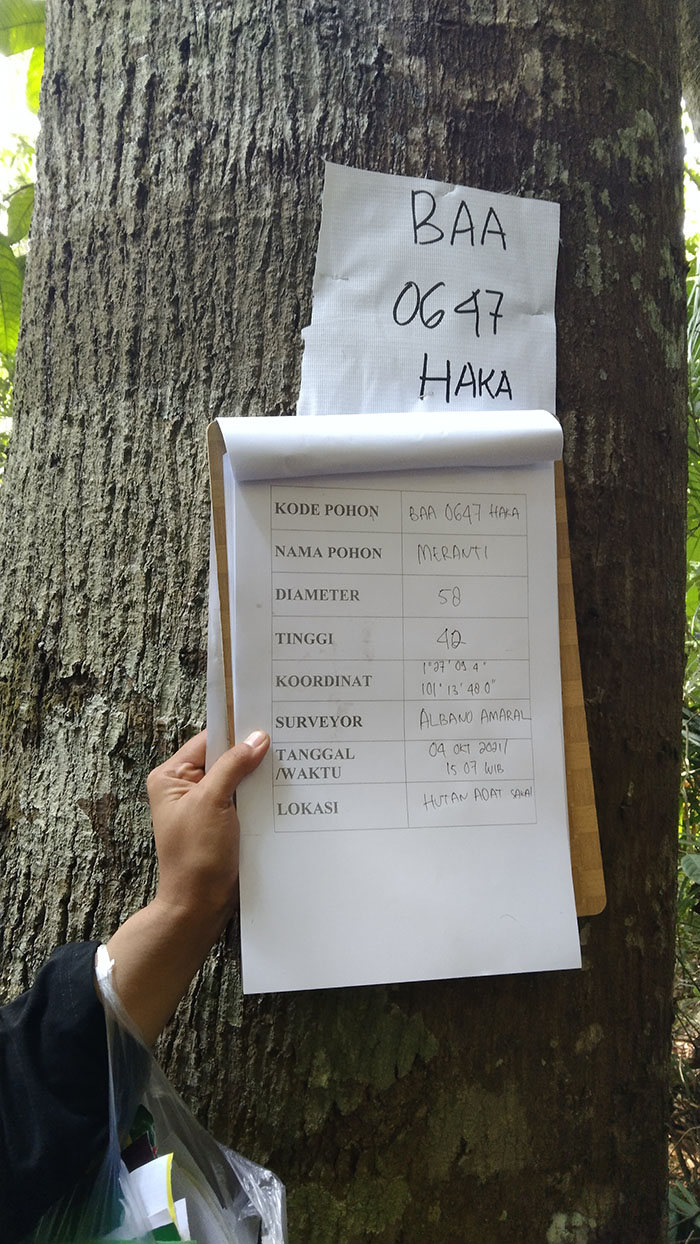 BAA
0647
HAKA
KODE POHON BAA 0647 HAKA
NAMA POHON MERANTI
DIAMETER 58
TINGGI 42
KOORDINAT 1°27'09.4"
101°13'48.0"
SURVEYOR ALBANO AMARAL
TANGGAL 04 OKT 2021/
/WAKTU 15 07 WIB
LOKASI HUTAN ADAT SAKAI